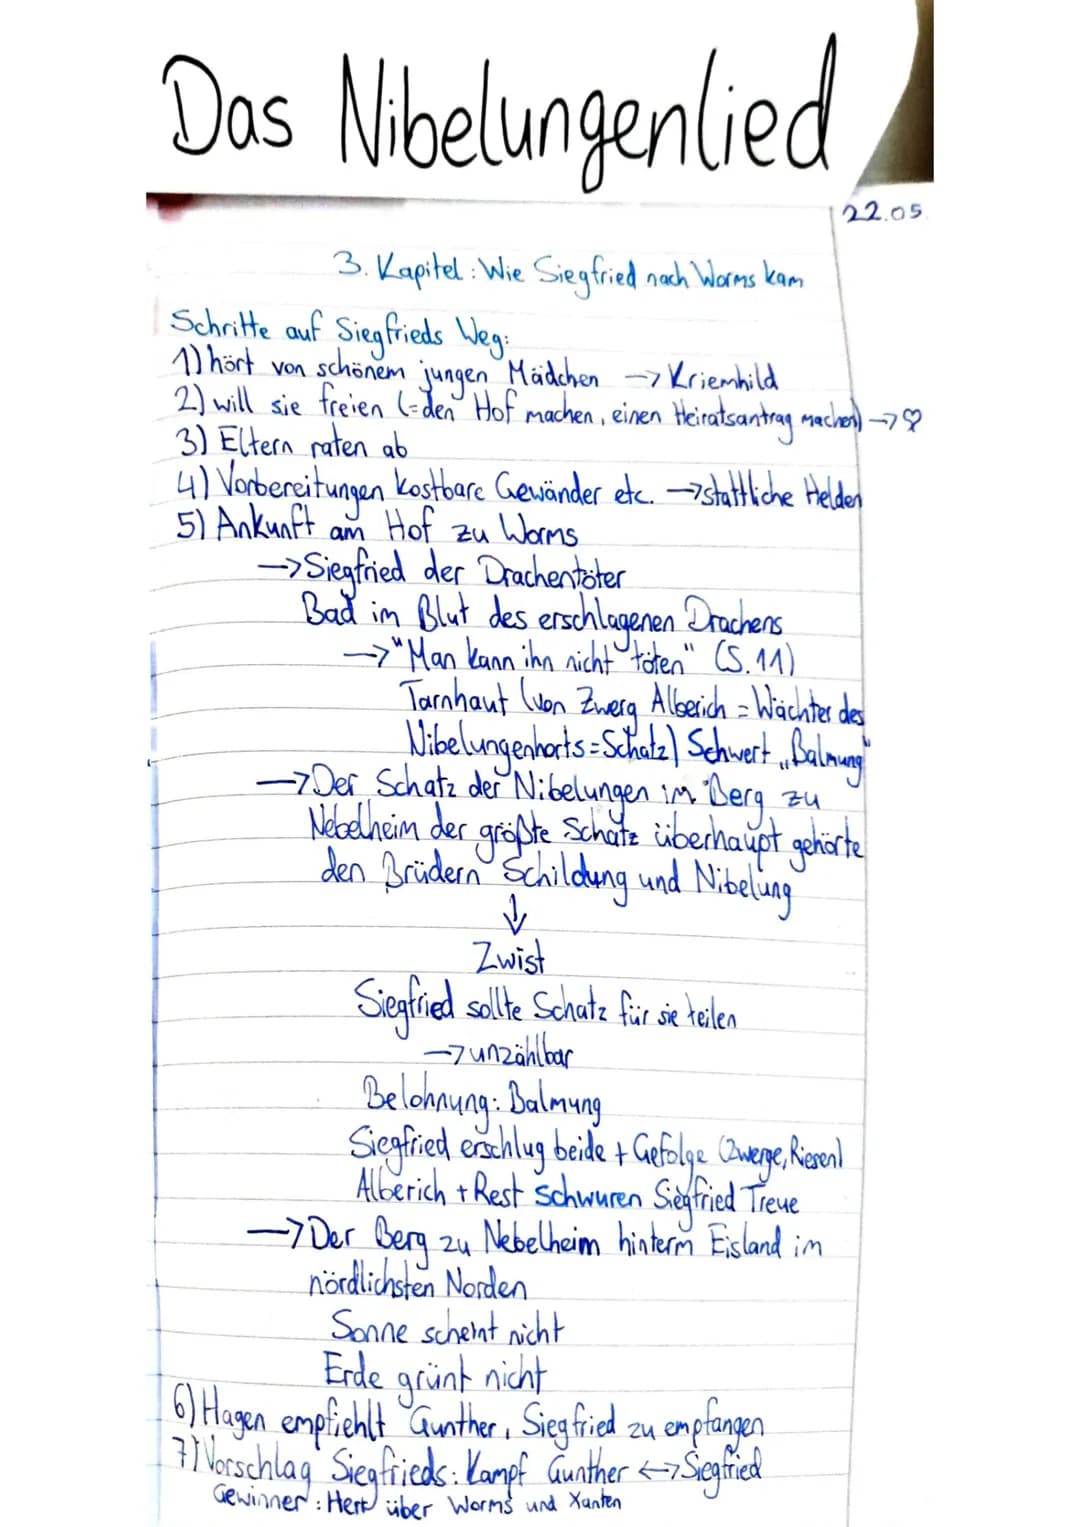 Das Nibelungenlied
22.05.
3. Kapitel: Wie Siegfried nach Worms kam
Schritte auf Siegfrieds Weg:
1) hört von schönem jungen Mädchen → Kriemhild
2) will sie freien (=den Hof machen, einen Heiratsantrag machen) → ♡
3) Eltern raten ab
4) Vorbereitungen kostbare Gewänder etc. → stattliche Helden
5) Ankunft am Hof zu Worms
→ Siegfried der Drachentöter
Bad im Blut des erschlagenen Drachens
→ "Man kann ihn nicht töten" (S. 11)
Tarnhaut (von Zwerg Alberich = Wächter des
Nibelungenhorts = Schatz) Schwert „Balmung"
→ Der Schatz der Nibelungen im Berg zu
Nebelheim der größte Schatz überhaupt gehörte
den Brüdern Schildung und Nibelung
↓
Zwist
Siegfried sollte Schatz für sie teilen
→ unzählbar
Belohnung: Balmung
Siegfried erschlug beide + Gefolge (Zwerge, Riesen)
Alberich + Rest schwuren Siegfried Treue
→ Der Berg zu Nebelheim hinterm Eisland im
nördlichsten Norden
Sonne scheint nicht
Erde grünt nicht
6) Hagen empfiehlt Gunther, Siegfried zu empfangen
7) Vorschlag Siegfrieds: Kampf Gunther ↔ Siegfried
Gewinner: Herr über Worms und Xanten